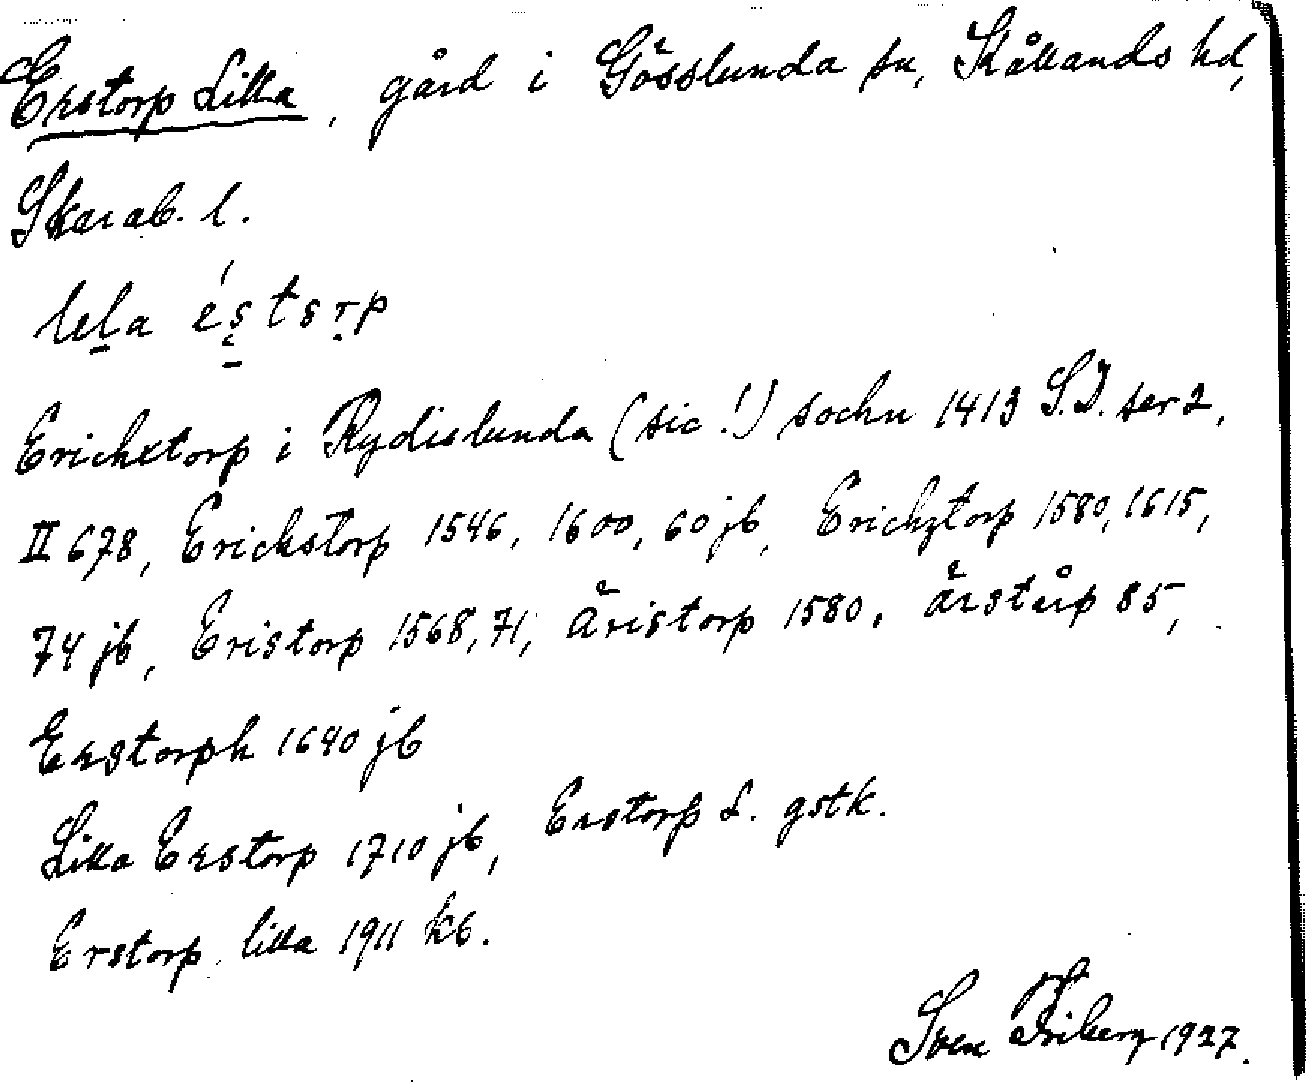 Erstorp Lilla, gård i Gösslunda sn, Kållands hd,
Skarab. l.
lela
Erichstorp i Rydislunda (sic!) sochn 1413 S.D. ser 2,
II 678, Erickstorp 1546, 1600, 60 jb, Erichztorp 1580, 1615,
74 jb, Eristorp 1568, 71, Äristorp 1580, ärstårp 85,
Erstorph 1640 jb
Lilla Erstorp 1710 jb, Erstorp L. gstk.
Erstorp lilla 1911 kb.
Sven Friberg 1927.